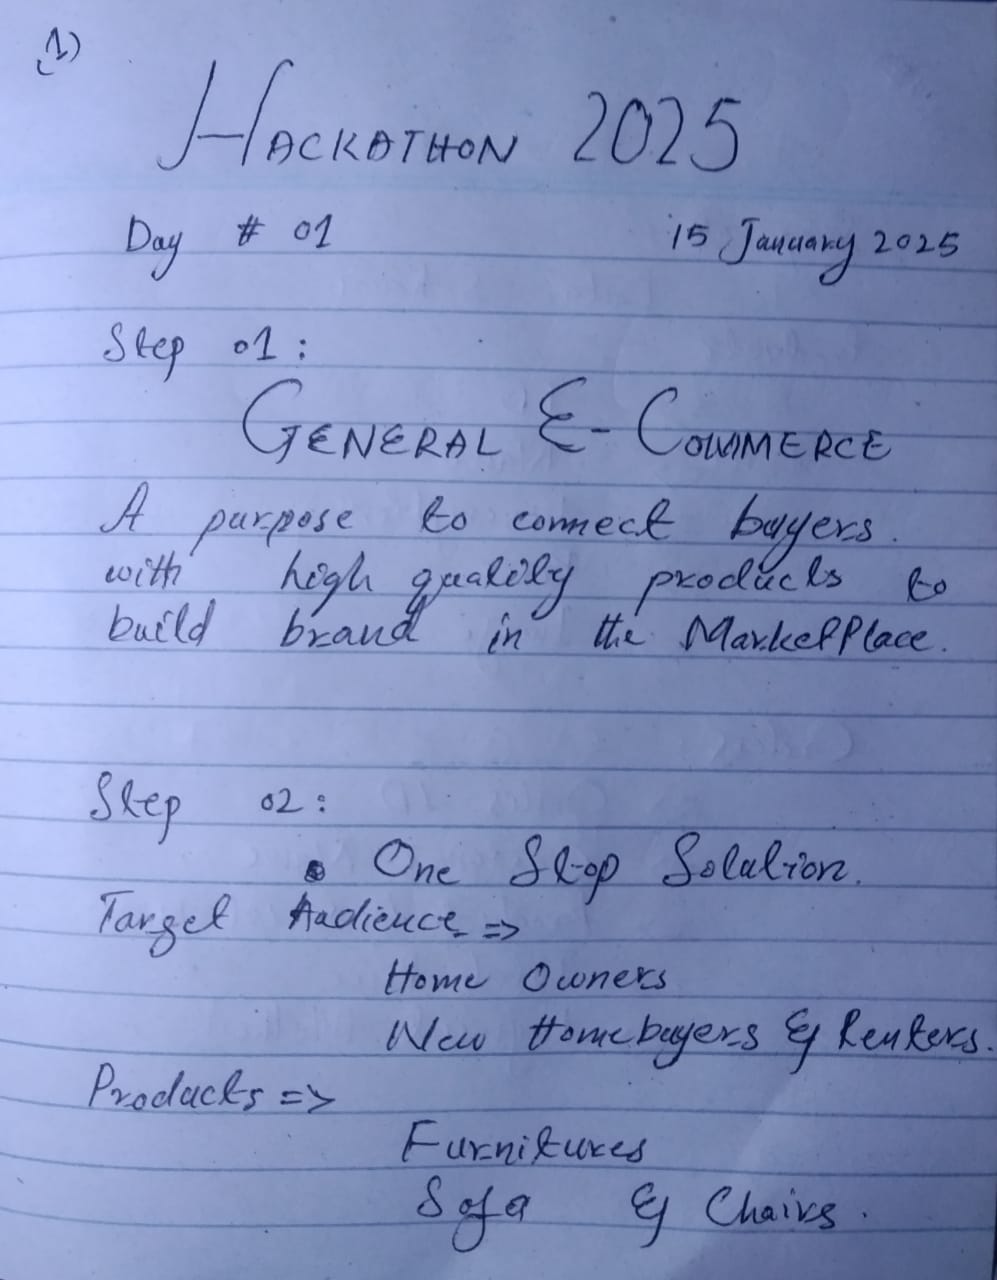 1)
HACKATHON 2025
Day # 01 15 January 2025
Step 01:
GENERAL E-COMMERCE
A purpose to connect buyers.
with high quality products to
build brand in the MarketPlace.
Step 02:
• One Stop Solution.
Target Audience =>
Home Owners
New Homebuyers & Renters.
Products =>
Furnitures
Sofa & Chairs.